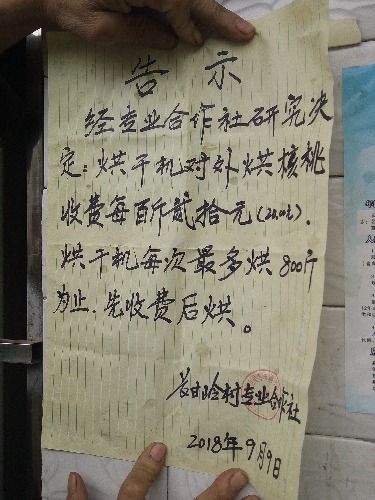 告示
经专业合作社研究决
定：烘干机对外烘核桃
收费每百斤贰拾元(20.00元)．
烘干机每次最多烘800斤
为止．先收费后烘。
村专业合作社
2018年9月9日